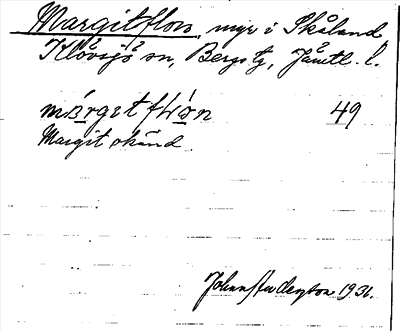 Margitflon, myr i Skåland
Klövsjö sn, Bergs tg, Jämtl. l.
márgɛt fɫɷ̀n 49
Margit okänd.
John Anderzon 1931.